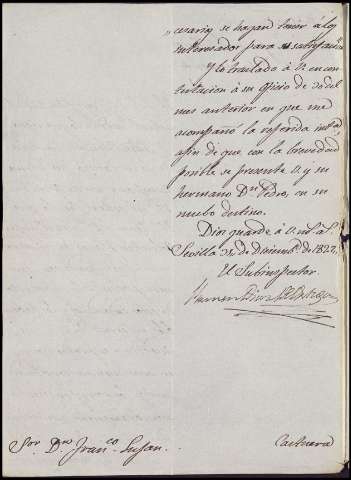 cesario se hayan tener á los
interesados para su satisfacc.n
Y lo traslado á V. en con
testacion á su oficio de 20 del
mes anterior en que me
acompañó la referida inst.a
afin de que con la brevedad
posible se presente V. y su
hermano D.n Pedro, en su
nuebo destino.
Dios guarde á V. m.s a.s
Sevilla de Diciemb.e de 1822.
El Subinspector
Sor. D.n Fran.co Lujan.